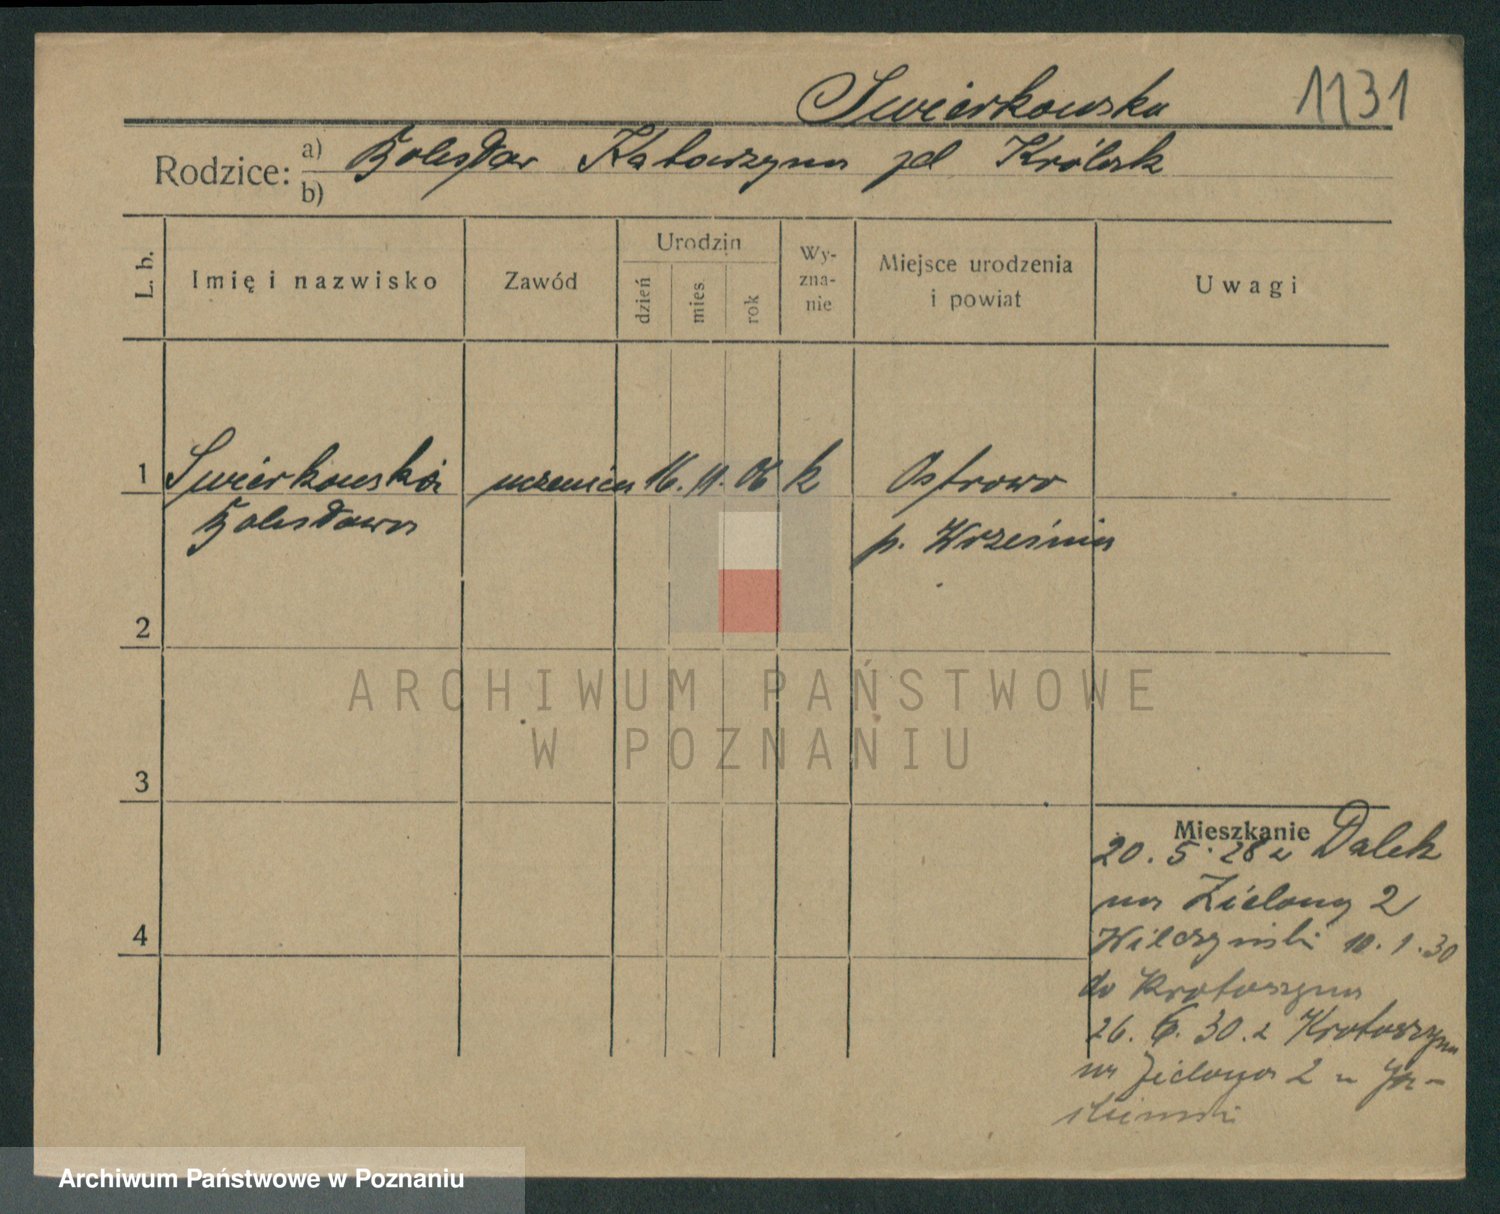 Swierkowska 1131
Rodzice: a) Bolesław Katarzyna zd Królak
b)
L. b. Imię i nazwisko Zawód Urodzin dzień mies rok Wy-zna-nie Miejsce urodzenia i powiat Uwagi
1 Swierkowska uczenica 16. 11. 06 k Ostrowo
Bolesława p. Września
2
ARCHIWUM PAŃSTWOWE
W POZNANIU
3
Mieszkanie
20. 5. 28 z Dalek
na Zieloną 2
Wilczyński 10. 1. 30
do Krotoszyna
26. 6. 30. z Krotoszyna
4
na Zielona 2 u
Archiwum Państwowe w Poznaniu